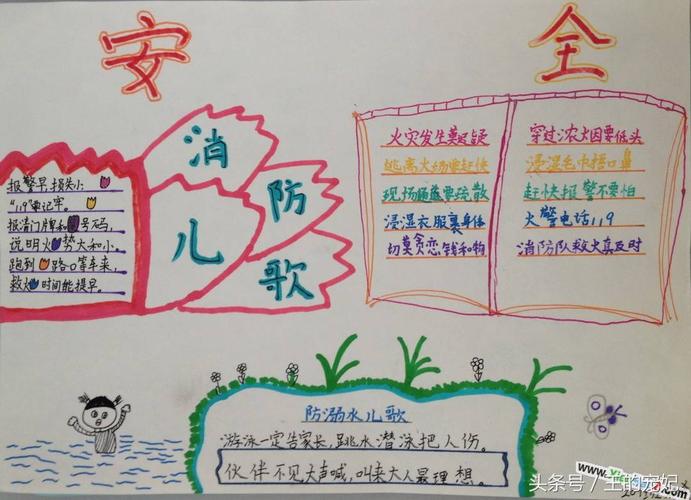 安全
消防
儿歌
报警早,损失小
“119”要记牢。
报清门牌和号码,
说明火势大和小,
跑到路口等车来,
救火时间能提早。
火灾发生莫迟疑
逃离火场要赶快
现场通道要疏散
浸湿衣服裹身体
切莫贪恋钱和物
穿过浓烟要低头
浸湿毛巾捂口鼻
赶快报警不要怕
火警电话119
消防队救火真及时
防溺水儿歌
游泳一定告家长,跳水潜泳把人伤。
伙伴不见大声喊,叫来大人最理想。
头条号/王的宠妃